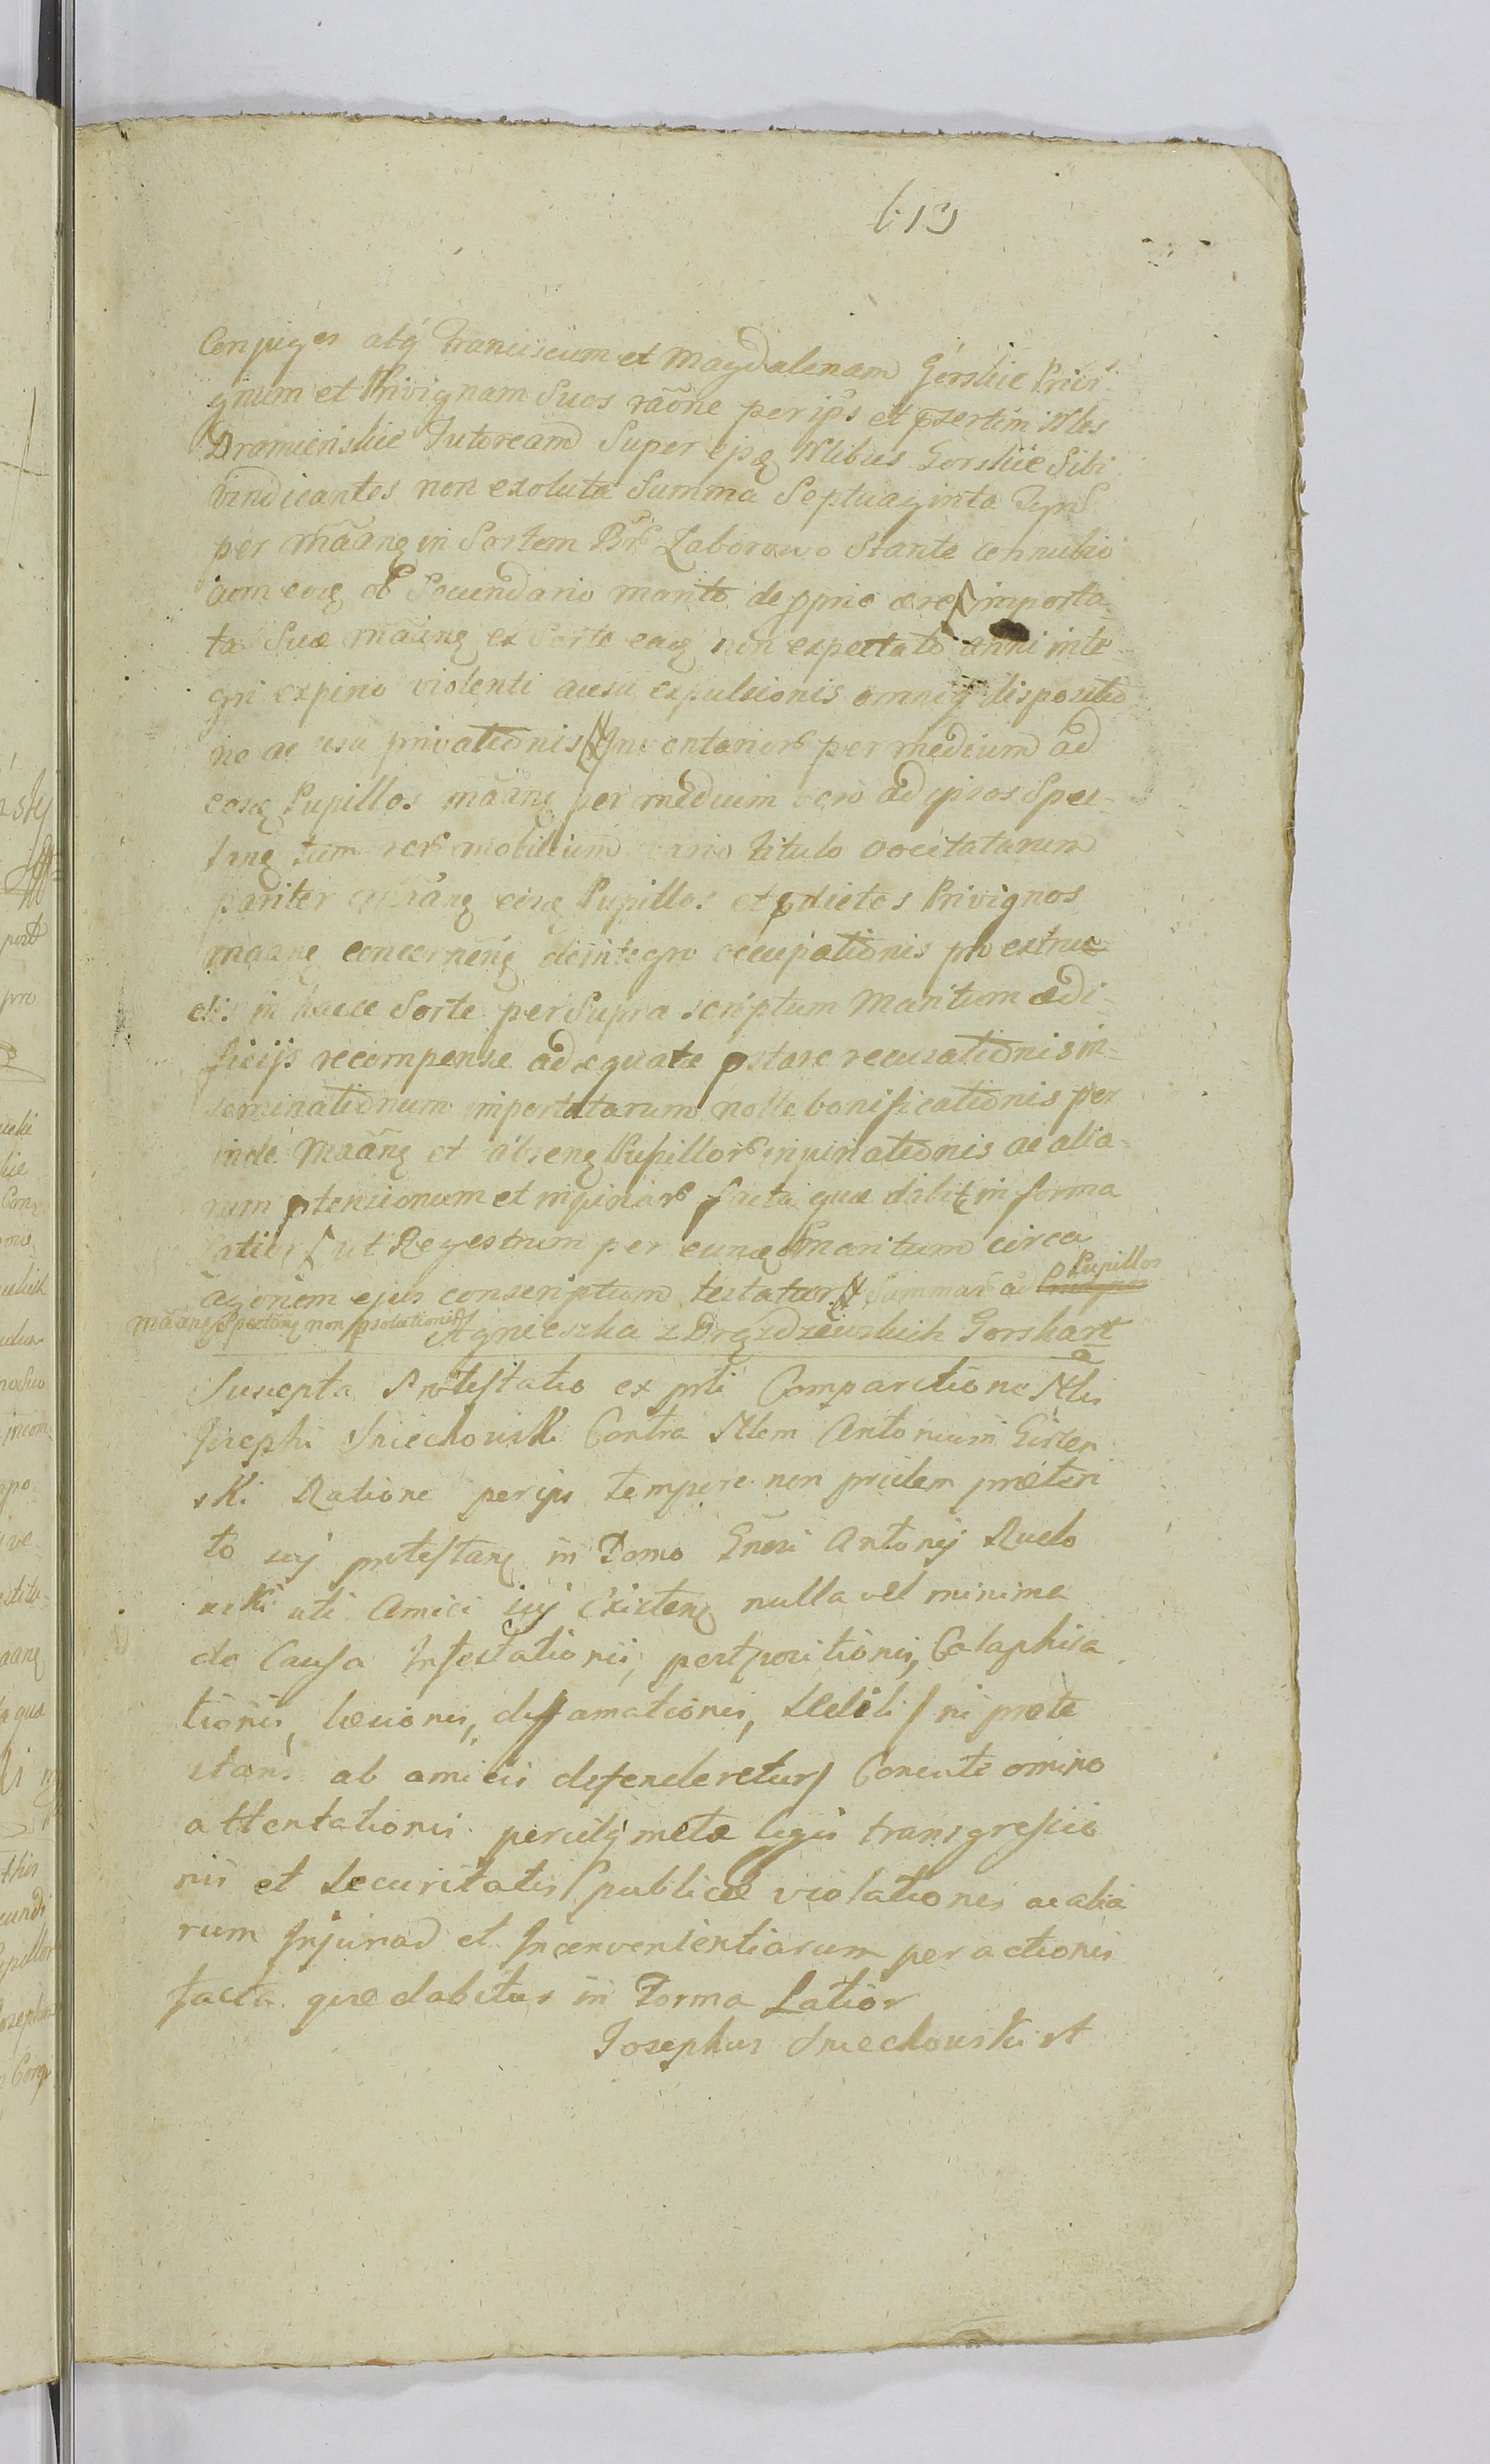 613
Conjuges atq Franciscum et Magdalenam Gorskie Privi-
gnum et Privignam Suos raõne per ips et psertim Nles
Dramienskie Tutoream Super ejsq Nlibus Gorskie Sibi
vindicantes non exoluta Summa Septuaginta Tynf
per mãanq in Sortem Bnr Zaborowo Stante connubio
cum eoq et Secundario marito de pprio ære importa-
ta Suæ mãanq ex Sorte eaq non expectato anni inte-
gri expirio violenti ausu expulsionis omniq dispositio
ne ac usu privationis Inventarior per medium ad
eosq Pupillos mãanq per medium vero ad ipsos Spec-
tanq tum rer mobilium vario titulo vocitatarum
pariter mãanq eosq Pupillos et pdictos Privignos
mãanq concernenq deintegro occupationis pro extru-
ctis in hacce Sorte per Supra scriptum Maritum ædi-
ficijs recompensæ adæquatæ pstare recusationis in-
seminationum importatarum nolle bonificationis per
inde Mãanq et absenq Pupillor injuriationis ac alia-
rum ptensionum et injuriar facta quæ dabitq in forma
latior ut Regestrum per eunq Maritum circa
agonem ejus conscriptum testatur Summar ad Pupillos
mãanq Spectanq non psolutionis
Agnieszka z Drązdzewskich Gorska
Suscepta Protestatio ex prli Comparitione Nlis
Josephi Sniechowski Contra Nlem Antonium Gisten
ski Ratione per ips tempore non pridem præteri
to sũj protestanq in Domo Gñosi Antonij Rudo
wski uti Amici sũj Existenq nulla vel minima
de Causa Infestationis, postpositionis, Colaphisa
tionis, læsionis, diffamationis, ni prote
stans ab amicis defenderetur Conente omino
attentationis percutij metæ legis transgressio
nis et Securitatis publicæ violationis ac alia
rum Injuriar et Inconvenientiarum peractionis
facta quæ dabitur in Forma Latior
Josephus Sniechowski